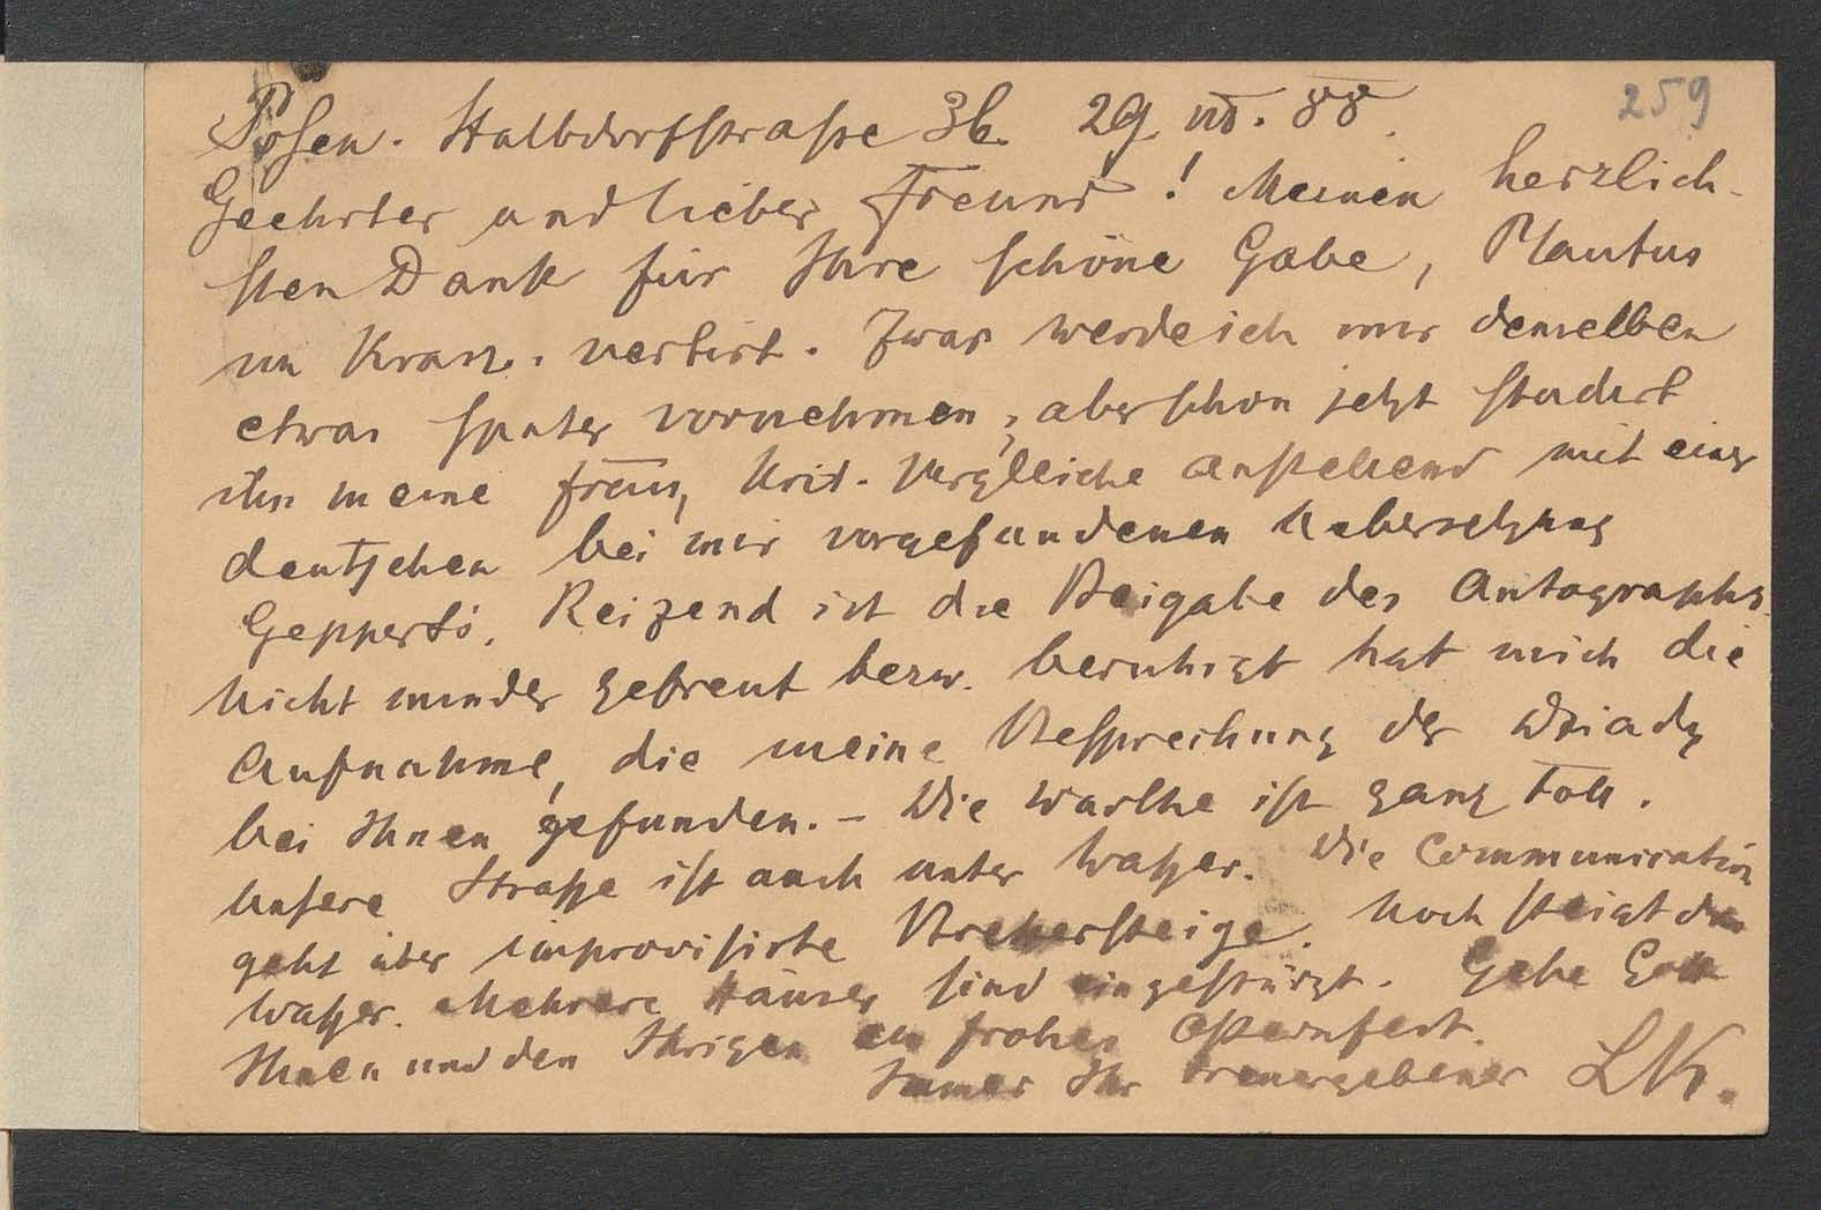 259
Posen. Halbdorfstraße 36. 29. III. 88.
Geehrter und lieber Freund! Meinen herzlich-
sten Dank für Ihre schöne Gabe, Plautus
vertirt. Zwar werde ich mir denselben
etwas später vornehmen, aber schon jetzt studirt
ihn meine Frau, krit. Vergleiche anstellend mit einer
deutschen bei mir vorgefundenen Uebersetzung
Gepperts. Reizend ist die Beigabe des Autographs.
Nicht minder gefreut bezw. beruhigt hat mich die
Aufnahme, die meine Besprechung der Dziady
bei Ihnen gefunden. – Die Warthe ist ganz toll.
Unsere Straße ist auch unter Waßer. Die Communication
geht über improvisirte Brettersteige. Noch steigt das
Waßer. Mehrere Häuser sind eingestürzt. Gebe Gott
Ihnen und den Ihrigen ein frohes Osternfest.
Immer Ihr treuergebener LK.